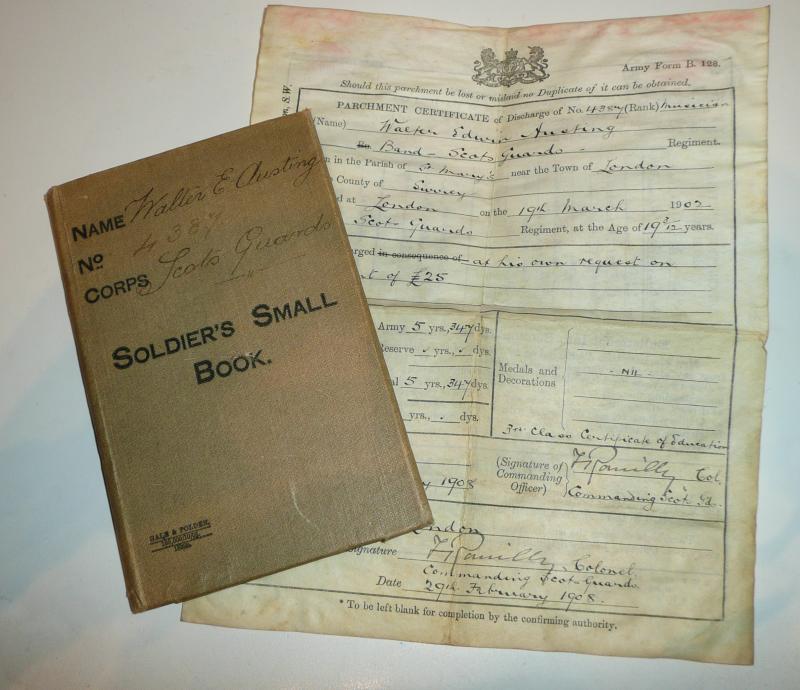 NAME Walter E Austing
No 4387
CORPS Scots Guards
SOLDIER'S SMALL
BOOK.
GALE & POLDEN,
Army Form B. 128.
Should this parchment be lost or mislaid no Duplicate of it can be obtained.
PARCHMENT CERTIFICATE of Discharge of No. 4387 (Rank) Musician
(Name) Walter Edwin Austing
Band - Scots Guards - Regiment.
in the Parish of St Mary's near the Town of London
County of Surrey
at London on the 19th March 1902
Scots Guards Regiment, at the Age of 19 2/12 years.
in consequence of at his own request on
of £25
Army 5 yrs., 347 dys.
Reserve . yrs., . dys.
5 yrs., 347 dys.
yrs., . dys.
Medals and
Decorations
- Nil -
3rd Class Certificate of Education
(Signature of
Commanding
Officer)
F Romilly Col.
Commanding Scots Gds.
1908
London
Signature F Romilly Colonel
Commanding Scots Guards
Date 29th February 1908.
* To be left blank for completion by the confirming authority.